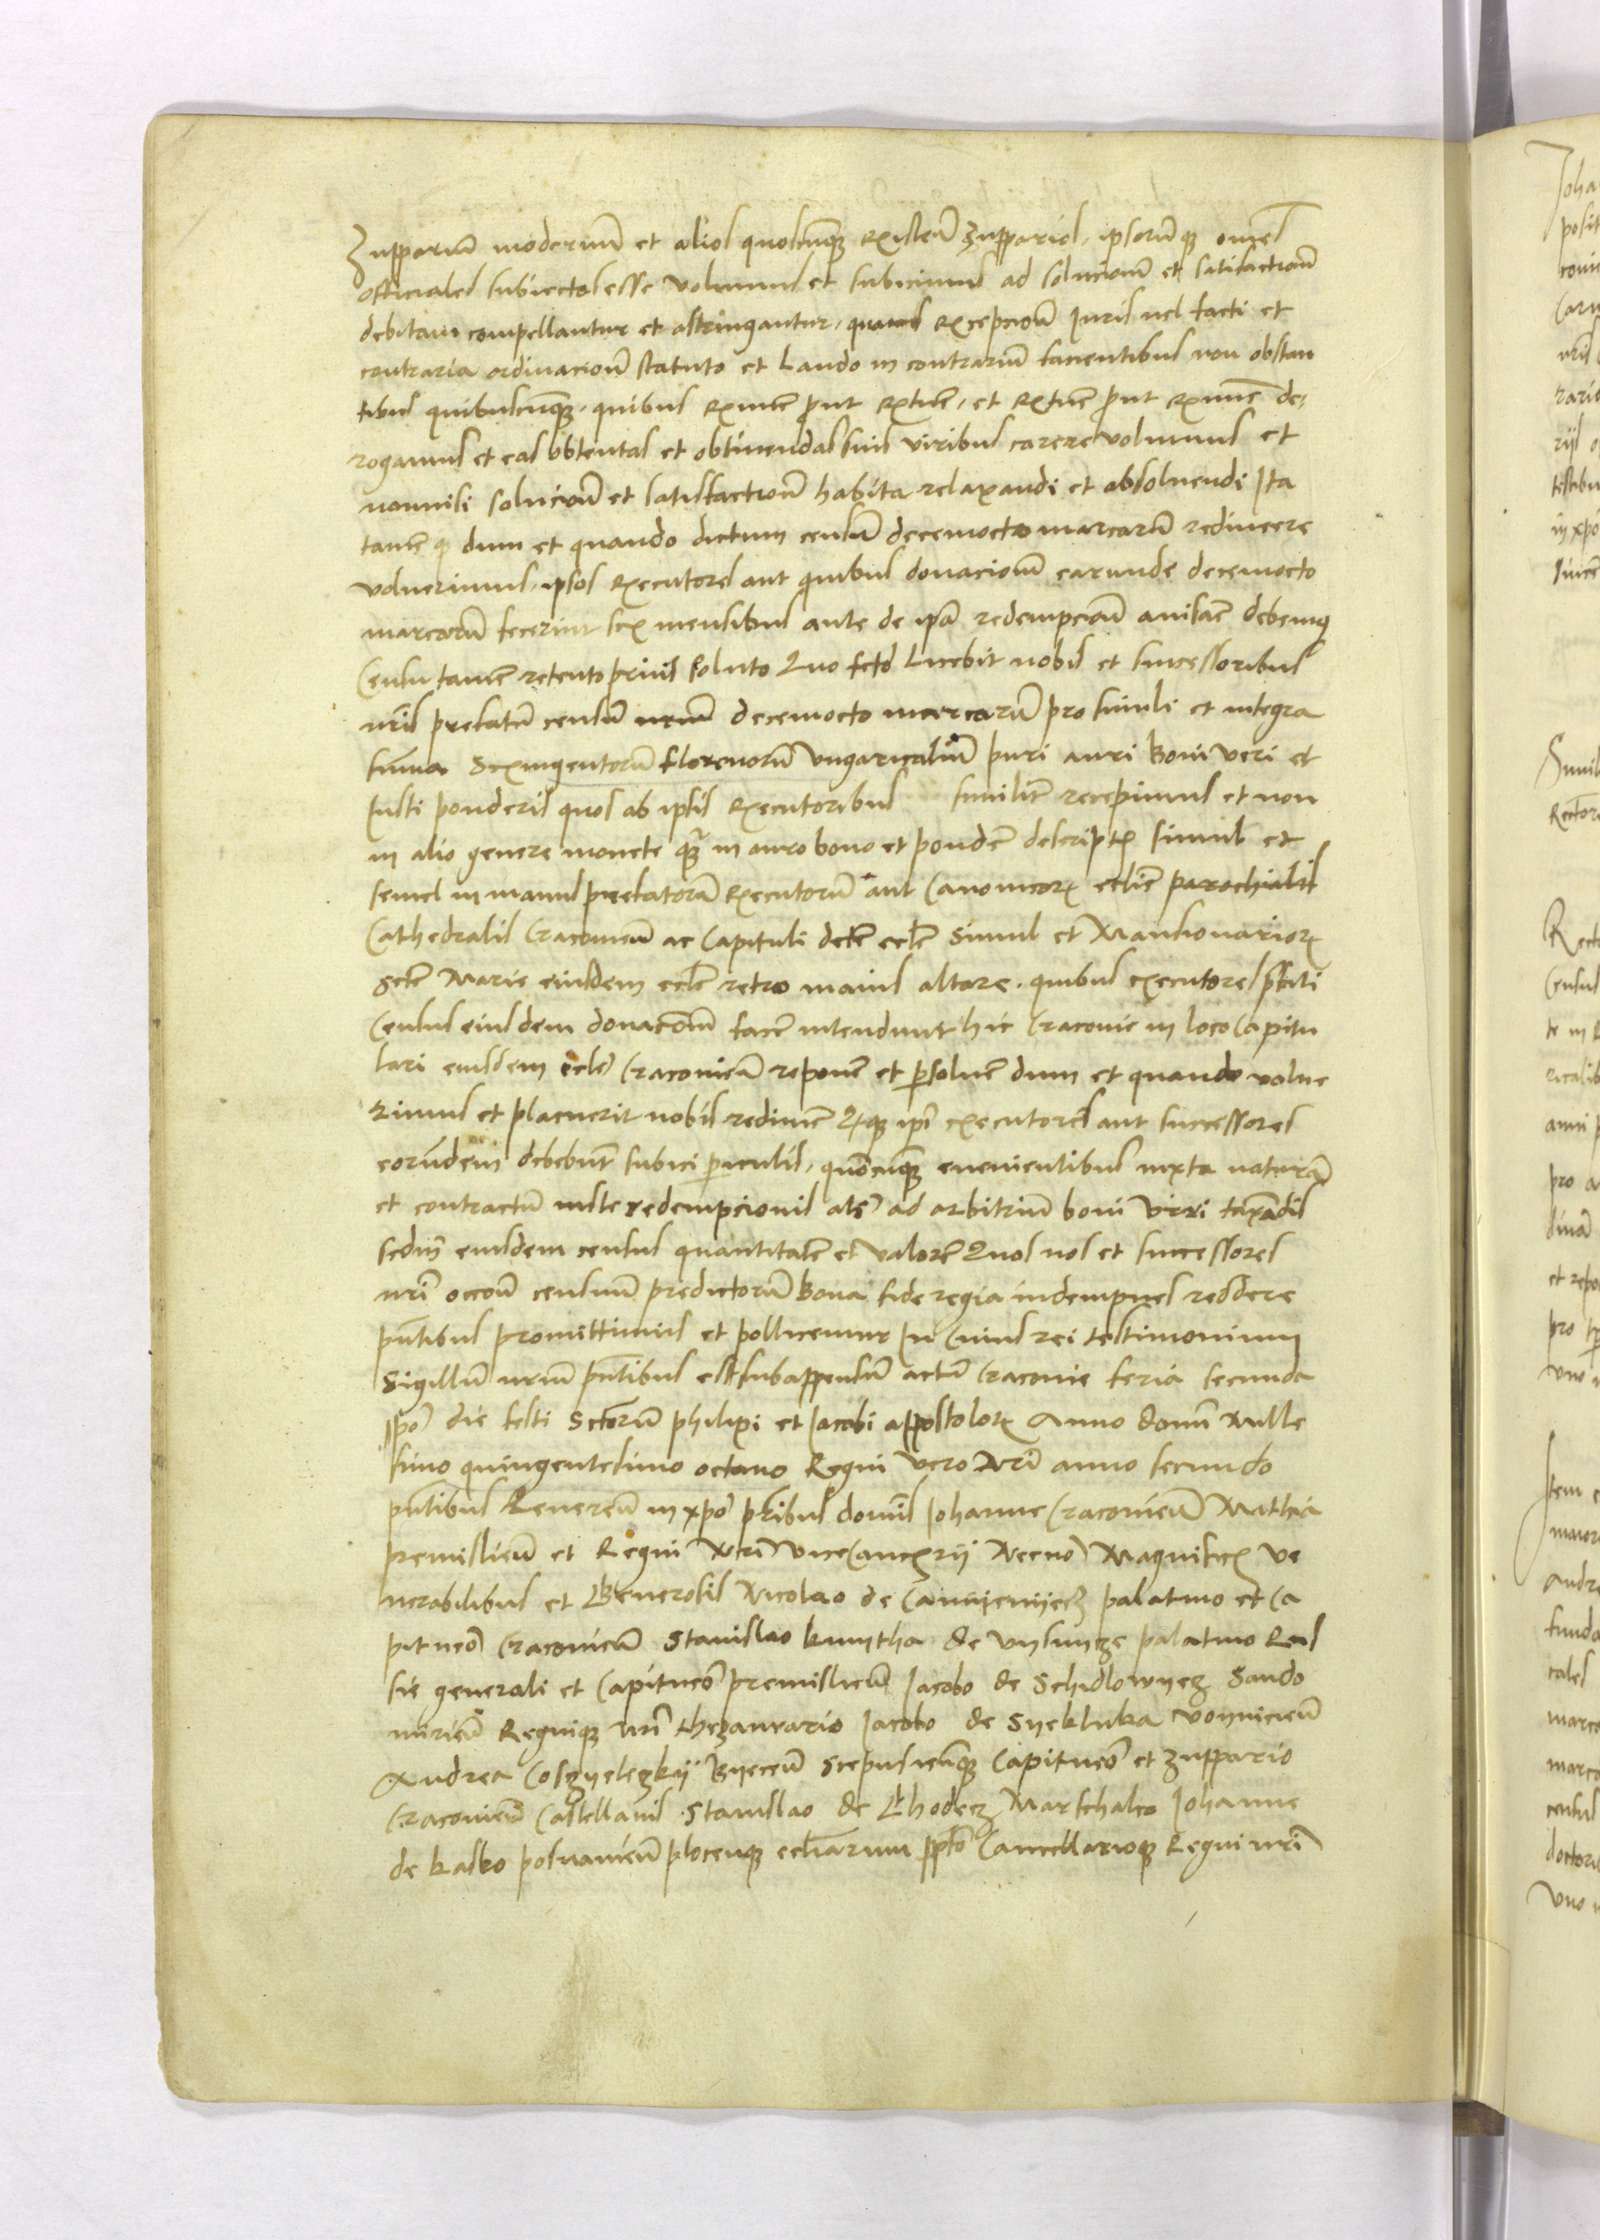 Zupparium modernum et alios quoscunque existen zupparios, ipsorumque omnes
officiales subiectos esse volumus et subicimus ad solucionem et satisfactionem
debitam compellantur et astringantur, quavis excepcione Iuris vel facti et
contraria ordinacione statuto et Laudo in contrarium facientibus non obstan
tibus quibuscunque, quibus exnunc prout extunc, et extunc prout exnunc de,
rogamus et eas obtentas et obtinendas suis viribus carere volumus et
nonnisi solucione et satisfactione habita relaxandi et absolvendi Ita
tamen q dum et quando dictum censum decemocto marcarum redimere
voluerimus, ipsos Executores aut quibus donacionem earunde decemocto
marcarum fecerint sex mensibus ante de ipsa redempcione avisare debemus
Censu tamen retento prius soluto Quo facto Licebit nobis et successoribus
nris prefatum censum nrum decemocto marcarum pro simili et integra
summa Sexingentorum florenorum Ungaricalium puri auri Boni veri et
Iusti ponderis quos ab ipsis Executoribus similiter recepimus et non
in alio genere monete quam in auro bono et pondere descriptis simul et
semel in manus prefatorum Executorum aut Canonicorum eclie parochialis
Cathedralis Cracovien ac Capituli dicte eclie simul et Mansionariorum
Scte Marie eiusdem eclie retro maius altare, quibus executores prefati
Census eiusdem donacionem facere intendunt hic Cracovie in loco Capitu
lari eiusdem eclie Cracovien reponere et persolvere dum et quando volue
rimus et placuerit nobis redimere Quique ipsi executores aut successores
eorundem debebunt subici periculis, quomcunque evenientibus iuxta naturam
et contractum iuste redempcionis als ad arbitrium boni viri taxandis
scdm eiusdem census quantitatem et valorem Quos nos et successores
nri occone censuum predictorum Bona fide regia indempnes reddere
pntibus promittimus et pollicemur In Cuius rei testimonium
Sigillum nrum pntibus est subappensum actum Cracovie feria secunda
ipso die festi Sctorum philipi et Iacobi appostolorum Anno domini Mille
simo quingentesimo octavo Regni vero Nri anno secundo
pntibus Reveren in xpo pribus dominis Iohanne Cracovien Mathia
premislien et Regni Nri vicecancrii Necno Magnificis Ve
nerabilibus et Generosis Nicolao de Camijenijecz palatino et Ca
pitneo Cracovien Stanislao kmytha de vysnycze palatino Rus
sie generali et Capitneo premislien Iacobo de Schidlowyecz Sando
mirien Regnique nri thezaurario Iacobo de Syekluka voynicien
Andrea Cosczyelezkij Byecen Scepusienque Capitneo et zuppario
Cracovien Castellanis Stanislao de Chodecz Marschalco Iohanne
de Lasko posnanien plocenque ecliarum ppto Cancellarioque Regni nri